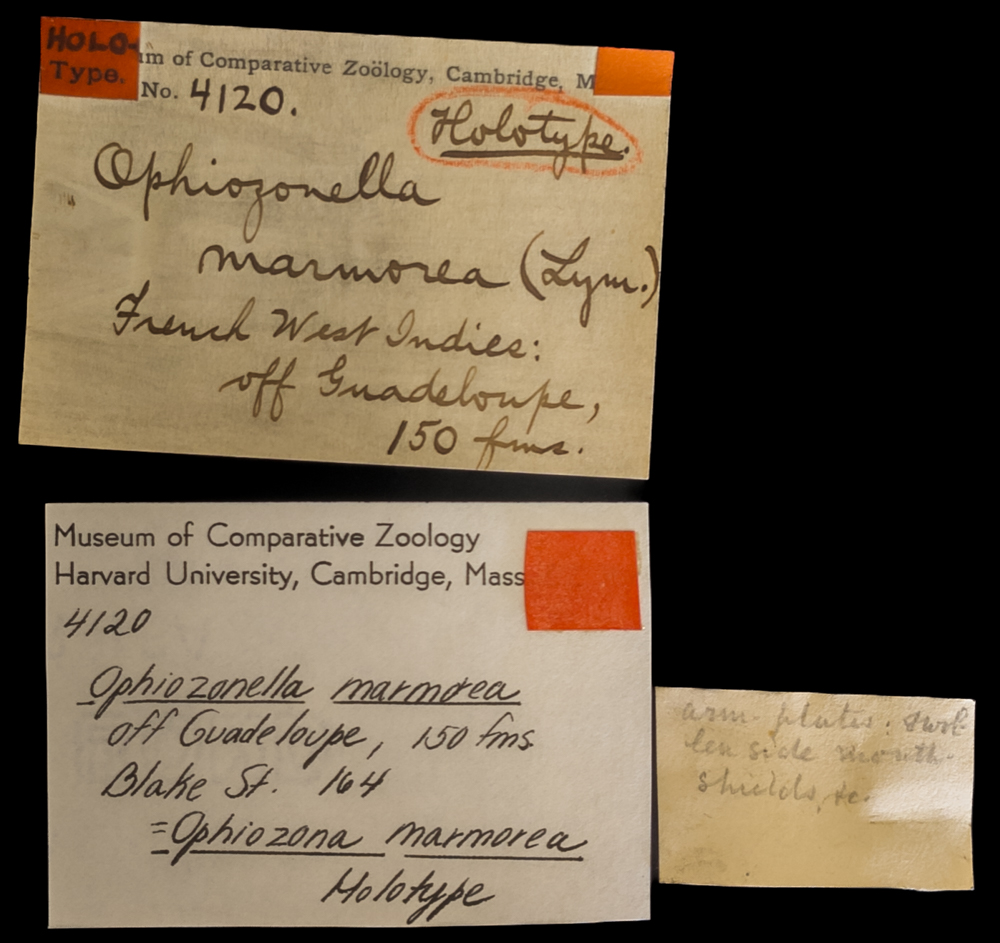 HOLO-
Type.
um of Comparative Zoölogy, Cambridge, M
No. 4120.
Holotype.
Ophiozonella
marmorea (Lym.)
French West Indies:
off Guadeloupe,
150 fms.
Museum of Comparative Zoology
Harvard University, Cambridge, Mass
4120
Ophiozonella marmorea
off Guadeloupe, 150 fms.
Blake St. 164
=Ophiozona marmorea
Holotype
arm plates: swol-
len side mouth-
shields, &c.